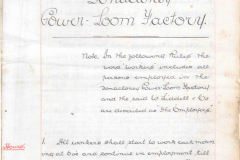 Donacloney
Power-Loom Factory.
Note. In the following Rules the
word "workers" includes all
persons employed in the
Donacloney Power Loom Factory
and the said to Liddell & Co
are denoted as the Employers
1. All workers shall start to work each morn
ing at six and continue in employment till